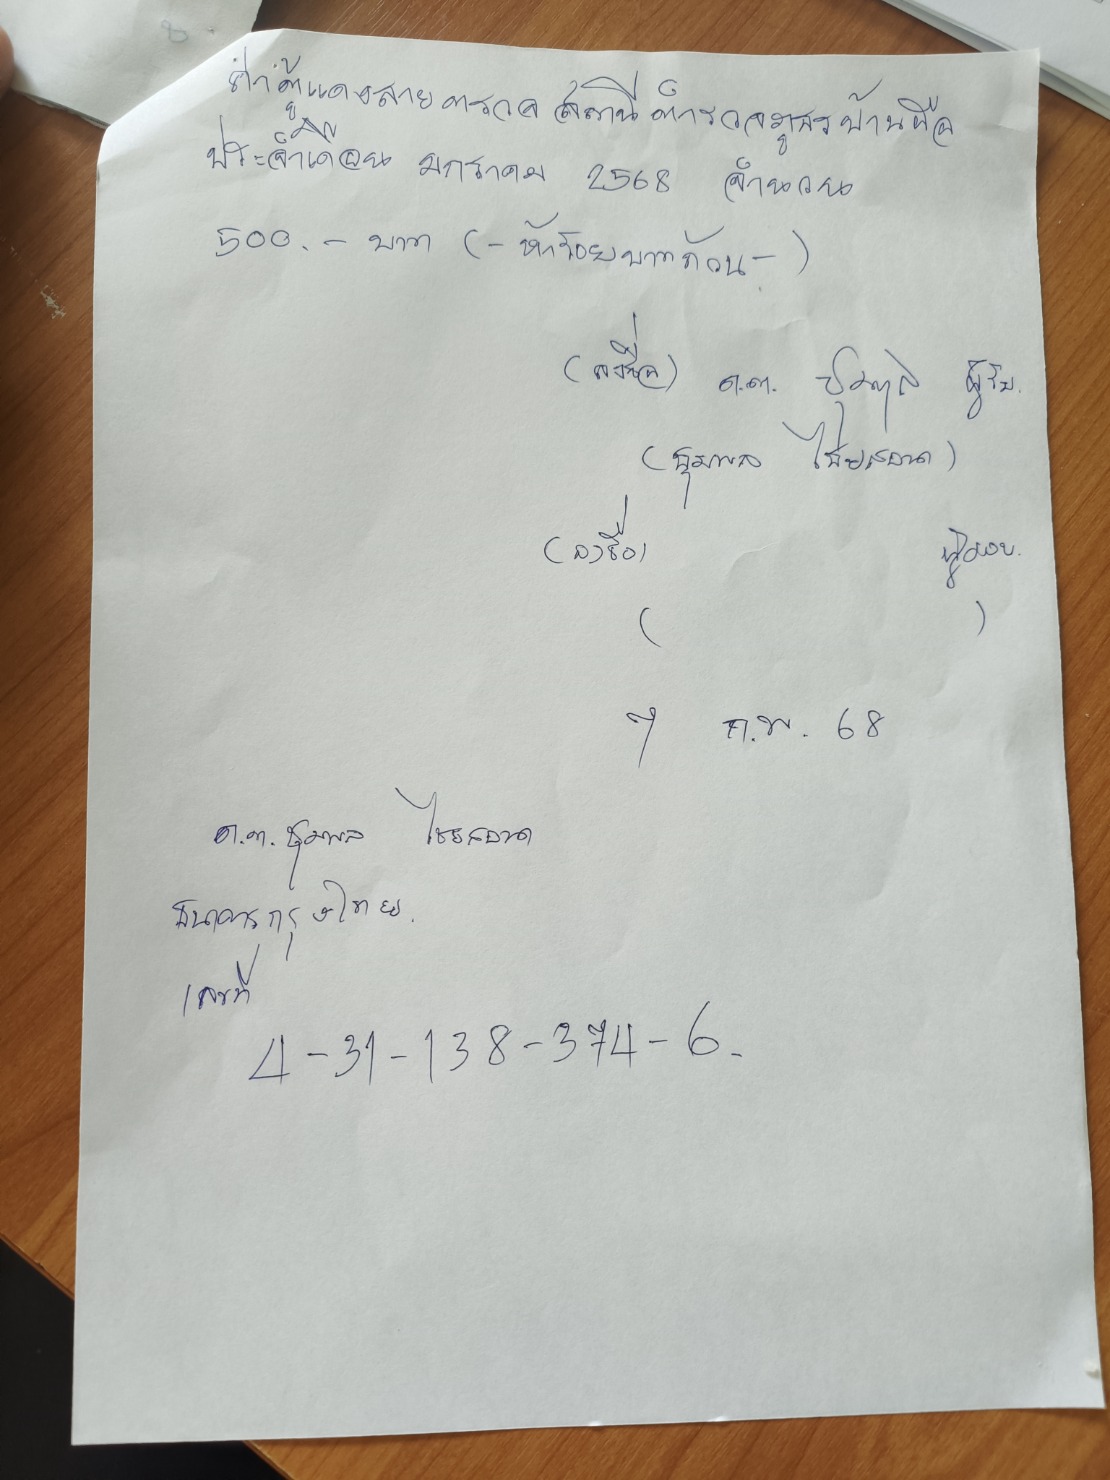 ค่าตู้แดงสายตรวจ สถานีตำรวจภูธรบ้านผือ
ประจำเดือน มกราคม 2568 จำนวน
500.- บาท (- ห้าร้อยบาทถ้วน -)
(ลงชื่อ) ด.ต. ชุมพล ผู้รับ.
(ชุมพล ไชยสอาด)
(ลงชื่อ) ผู้มอบ.
( )
7 ก.พ. 68
ด.ต. ชุมพล ไชยสอาด
ธนาคารกรุงไทย.
เลขที่
4-31-138-374-6.